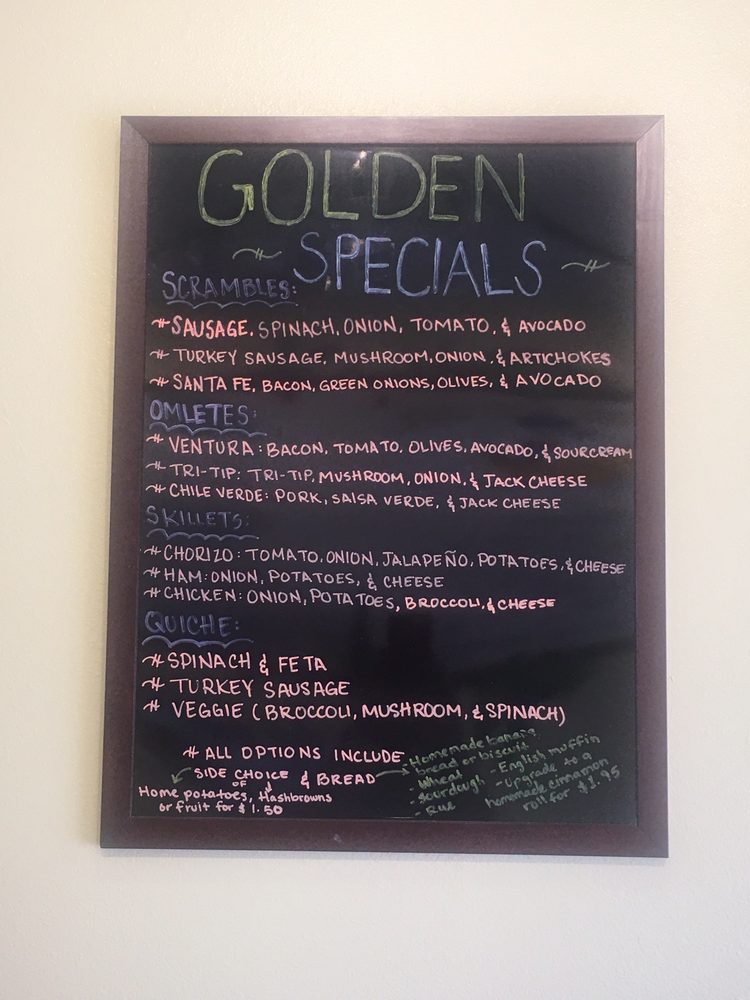 GOLDEN
SPECIALS
SCRAMBLES:
SAUSAGE, SPINACH, ONION, TOMATO, & AVOCADO
TURKEY SAUSAGE, MUSHROOM, ONION, & ARTICHOKES
SANTA FE, BACON, GREEN ONIONS, OLIVES, & AVOCADO
OMLETES:
VENTURA: BACON, TOMATO, OLIVES, AVOCADO, & SOURCREAM
TRI-TIP: TRI-TIP, MUSHROOM, ONION, & JACK CHEESE
CHILE VERDE: PORK, SALSA VERDE, & JACK CHEESE
SKILLETS:
CHORIZO: TOMATO, ONION, JALAPEÑO, POTATOES, & CHEESE
HAM: ONION, POTATOES, & CHEESE
CHICKEN: ONION, POTATOES, BROCCOLI, & CHEESE
QUICHE:
SPINACH & FETA
TURKEY SAUSAGE
VEGGIE (BROCCOLI, MUSHROOM, & SPINACH)
ALL OPTIONS INCLUDE
SIDE CHOICE & BREAD
OF
Home potatoes, Hashbrowns
or fruit for $1.50
-Homemade banana
bread or biscuit
-Wheat
-Sourdough
-Rye
-English muffin
-Upgrade to a
homemade cinnamon
roll for $1.95